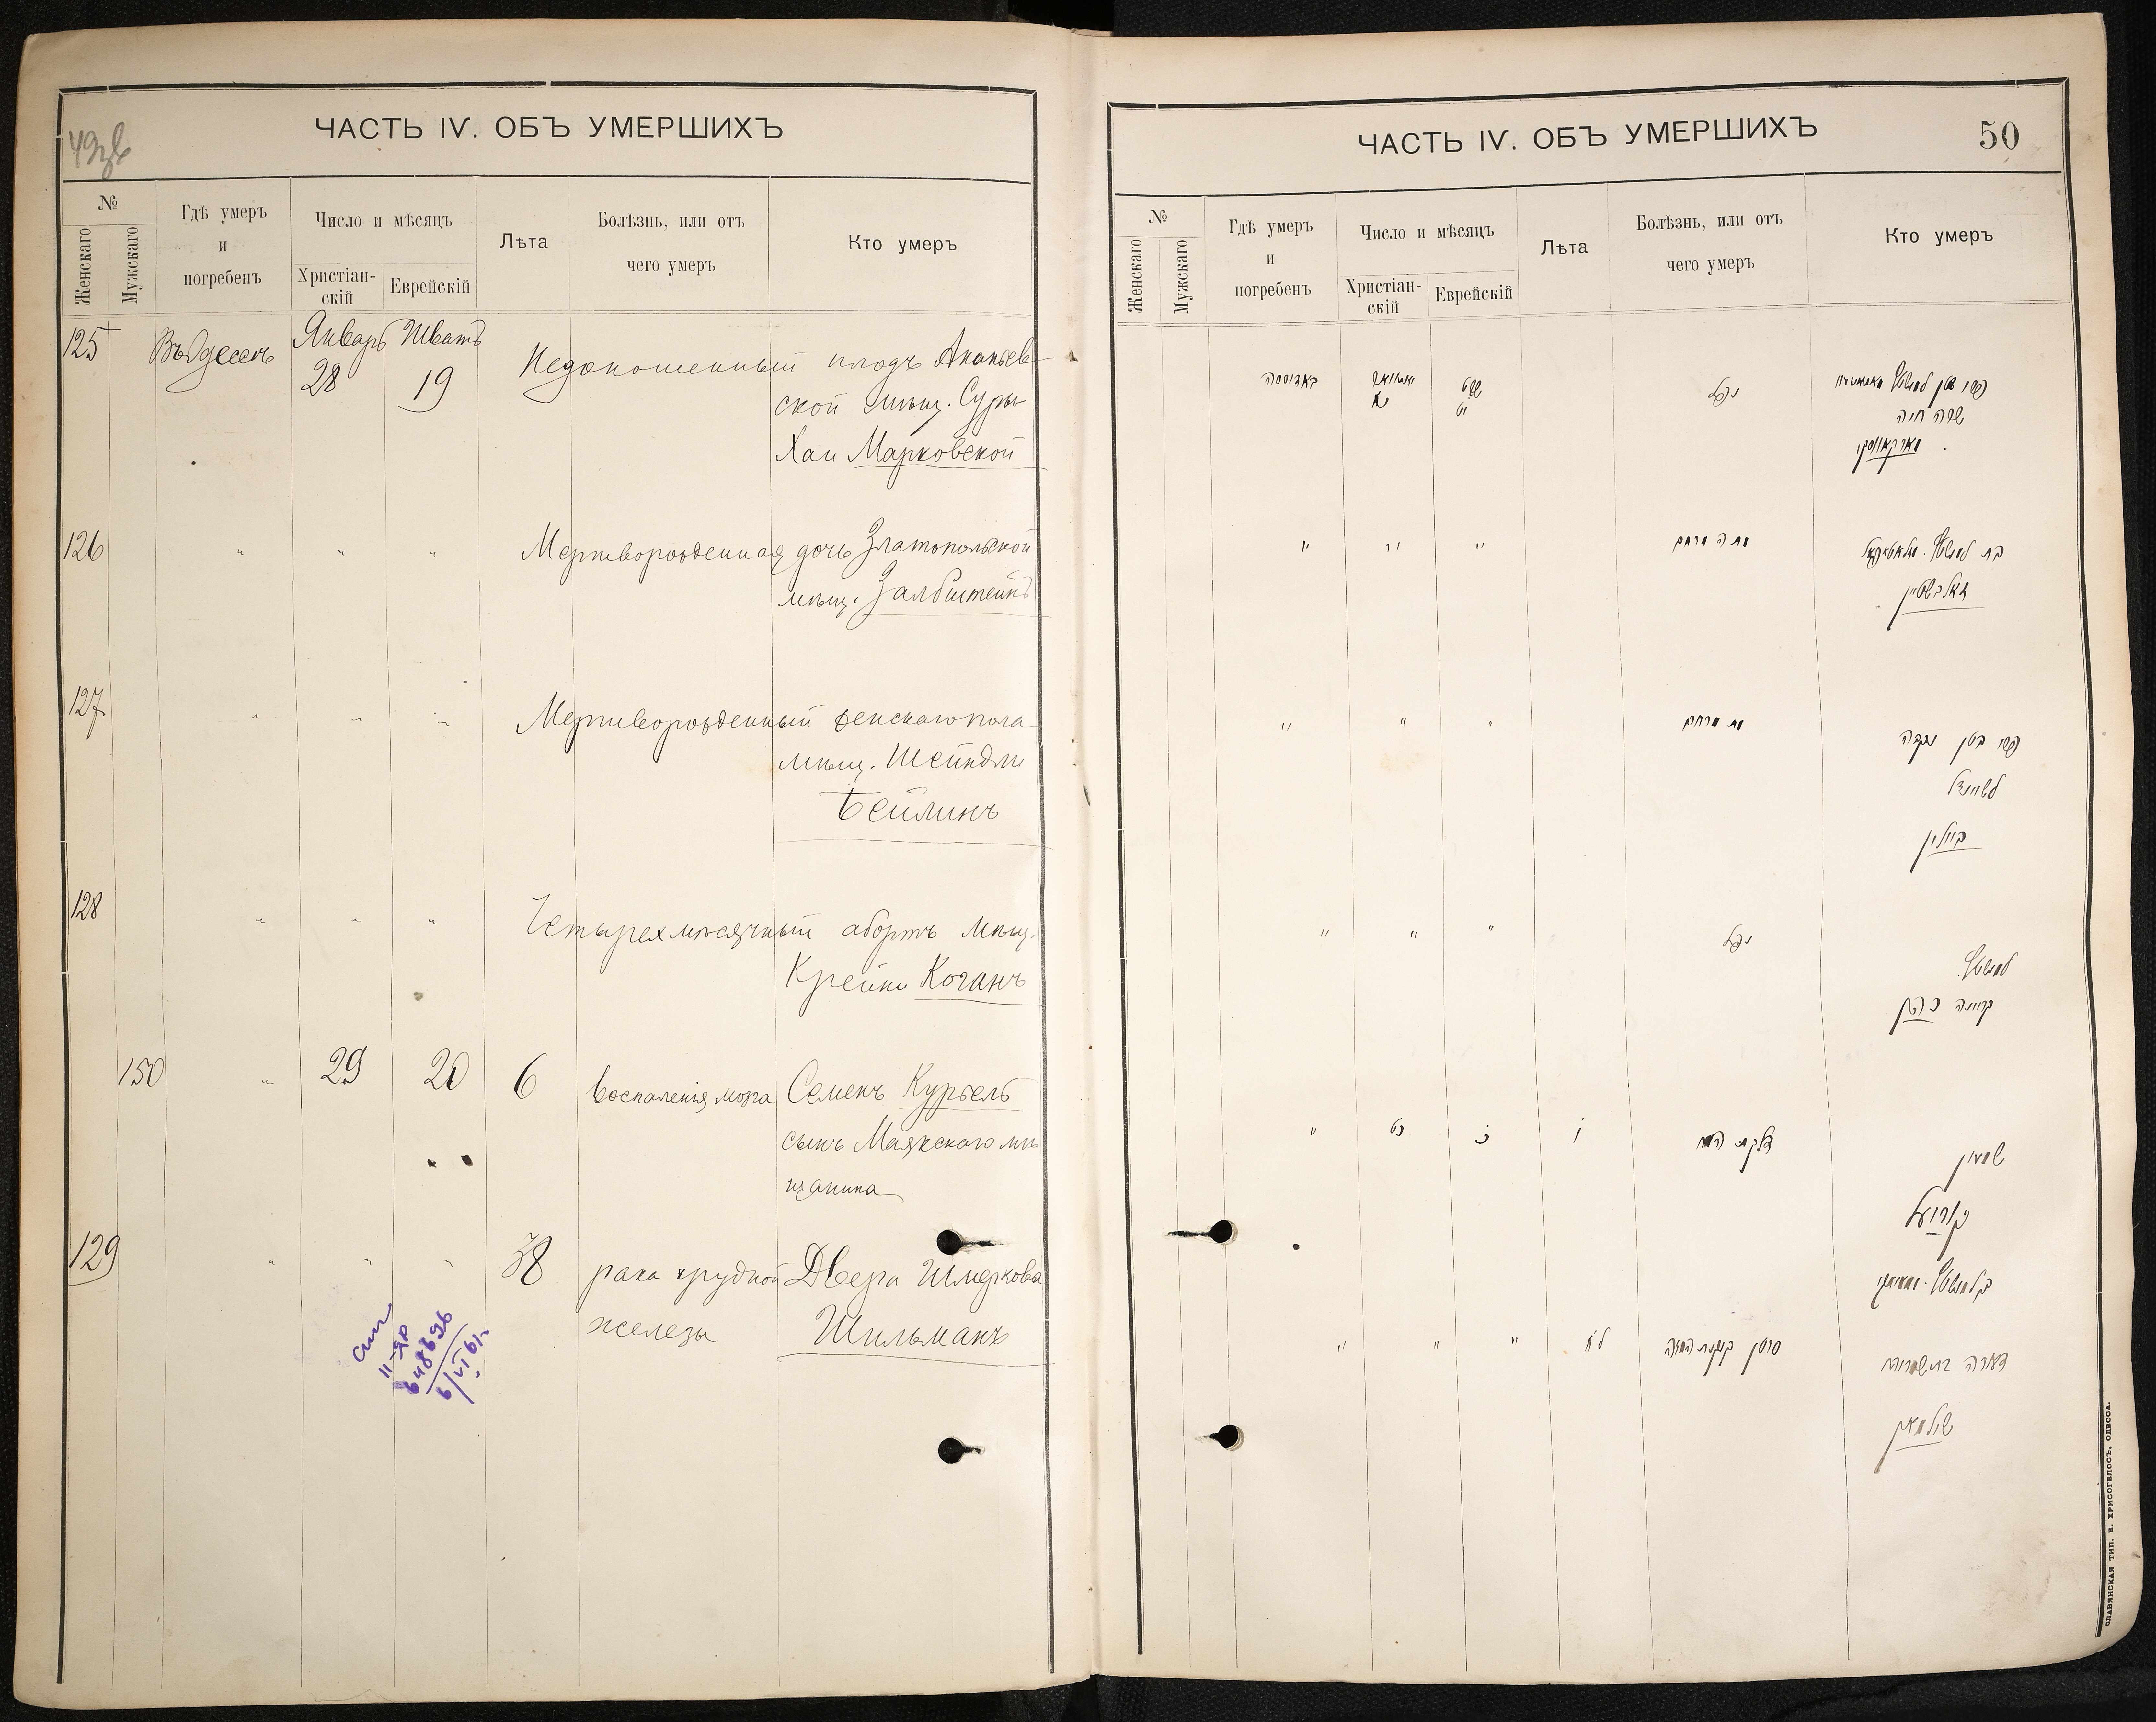 ЧАСТЬ IV. ОБЪ УМЕРШИХЪ
49об
№
Женскаго
Мужскаго
Гдѣ умеръ
и
погребенъ
Число и мѣсяцъ
Христіан-
скій
Еврейскій
Лѣта
Болѣзнь, или отъ
чего умеръ
Кто умеръ
125 Въ Одессѣ Январь 28 Шватъ 19 Недоношенный плодъ Ананьев-
ской мѣщ. Суры
Хаи Марковской
126 " " " Мертворожденная дочь Златопольской
мѣщ. Залбштейнъ
127 " " " Мертворожденный женскаго пола
мѣщ. Шейндли
Бейлинъ
128 " " " Четырехмѣсячный абортъ мѣщ.
Крейни Коганъ
150 " 29 20 6 воспаленія мозга Семенъ Курьель
сынъ Маякскаго мѣ
щанина
129 " " " 38 рака грудной Двера Шмеркова
железы Шильманъ
II-ЯР
648696
6/VI 61г.
ЧАСТЬ IV. ОБЪ УМЕРШИХЪ
50
№
Женскаго
Мужскаго
Гдѣ умеръ
и
погребенъ
Число и мѣсяцъ
Христіан-
скій
Еврейскій
Лѣта
Болѣзнь, или отъ
чего умеръ
Кто умеръ
באדוססה יאנואר כח שבט יט נפל פרי בטן
שרה חיה
מארקאווסקי
" " " מתה מרחם בת
זאלבשטיין
" " " מת מרחם פרי בטן נקבה
לשיינדל
ביילין
" " " נפל
קריינה כהן
" כט כ ו דלקת המח שמעון
קוריעל
" " " לח סרטן
דווירה בת שמריה
שילמאן
СЛАВЯНСКАЯ ТИП. Е. ХРИСОГЕЛОСЪ, ОДЕССА.